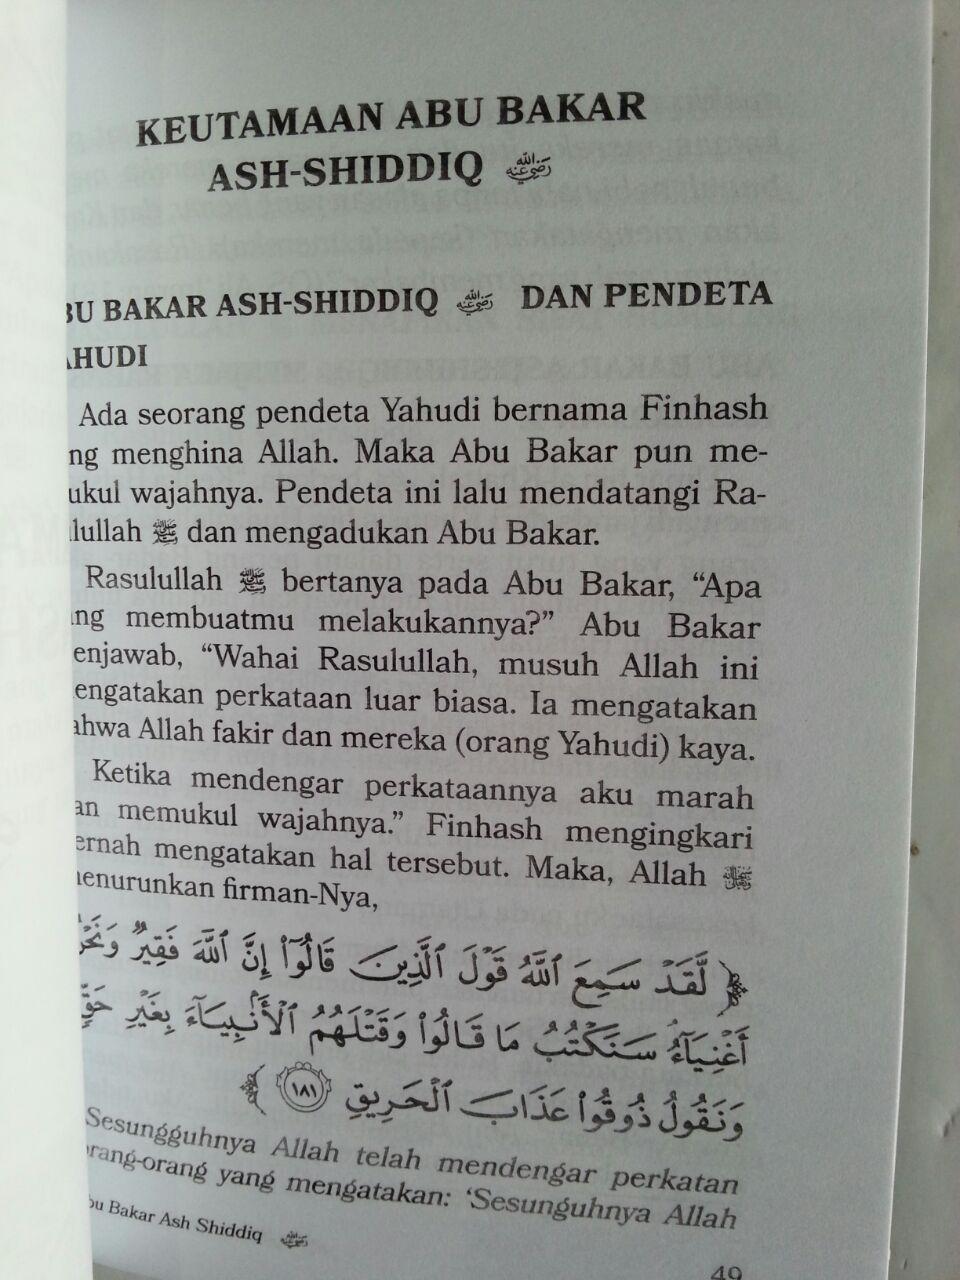 KEUTAMAAN ABU BAKAR
ASH-SHIDDIQ رضي الله عنه
BU BAKAR ASH-SHIDDIQ رضي الله عنه DAN PENDETA
AHUDI
Ada seorang pendeta Yahudi bernama Finhash
ng menghina Allah. Maka Abu Bakar pun me-
ukul wajahnya. Pendeta ini lalu mendatangi Ra-
lullah ﷺ dan mengadukan Abu Bakar.
Rasulullah ﷺ bertanya pada Abu Bakar, “Apa
ng membuatmu melakukannya?” Abu Bakar
enjawab, “Wahai Rasulullah, musuh Allah ini
engatakan perkataan luar biasa. Ia mengatakan
ahwa Allah fakir dan mereka (orang Yahudi) kaya.
Ketika mendengar perkataannya aku marah
an memukul wajahnya.” Finhash mengingkari
ernah mengatakan hal tersebut. Maka, Allah
enurunkan firman-Nya,
﴿ لَّقَدْ سَمِعَ ٱللَّهُ قَوْلَ ٱلَّذِينَ قَالُوٓا۟ إِنَّ ٱللَّهَ فَقِيرٌ وَنَحْنُ
أَغْنِيَآءُ سَنَكْتُبُ مَا قَالُوا۟ وَقَتْلَهُمُ ٱلْأَنۢبِيَآءَ بِغَيْرِ حَقٍّ
وَنَقُولُ ذُوقُوا۟ عَذَابَ ٱلْحَرِيقِ ١٨١ ﴾
Sesungguhnya Allah telah mendengar perkatan
rang-orang yang mengatakan: ‘Sesunguhnya Allah
bu Bakar Ash Shiddiq رضي الله عنه
49